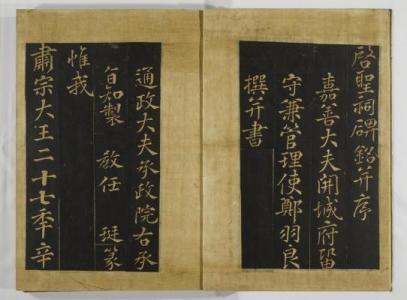 啓聖祠碑銘并序
嘉善大夫開城府留
守兼管理使鄭羽良
撰并書
通政大夫承政院右承
旨知製 教任 珽篆
惟我
肅宗大王二十七年辛